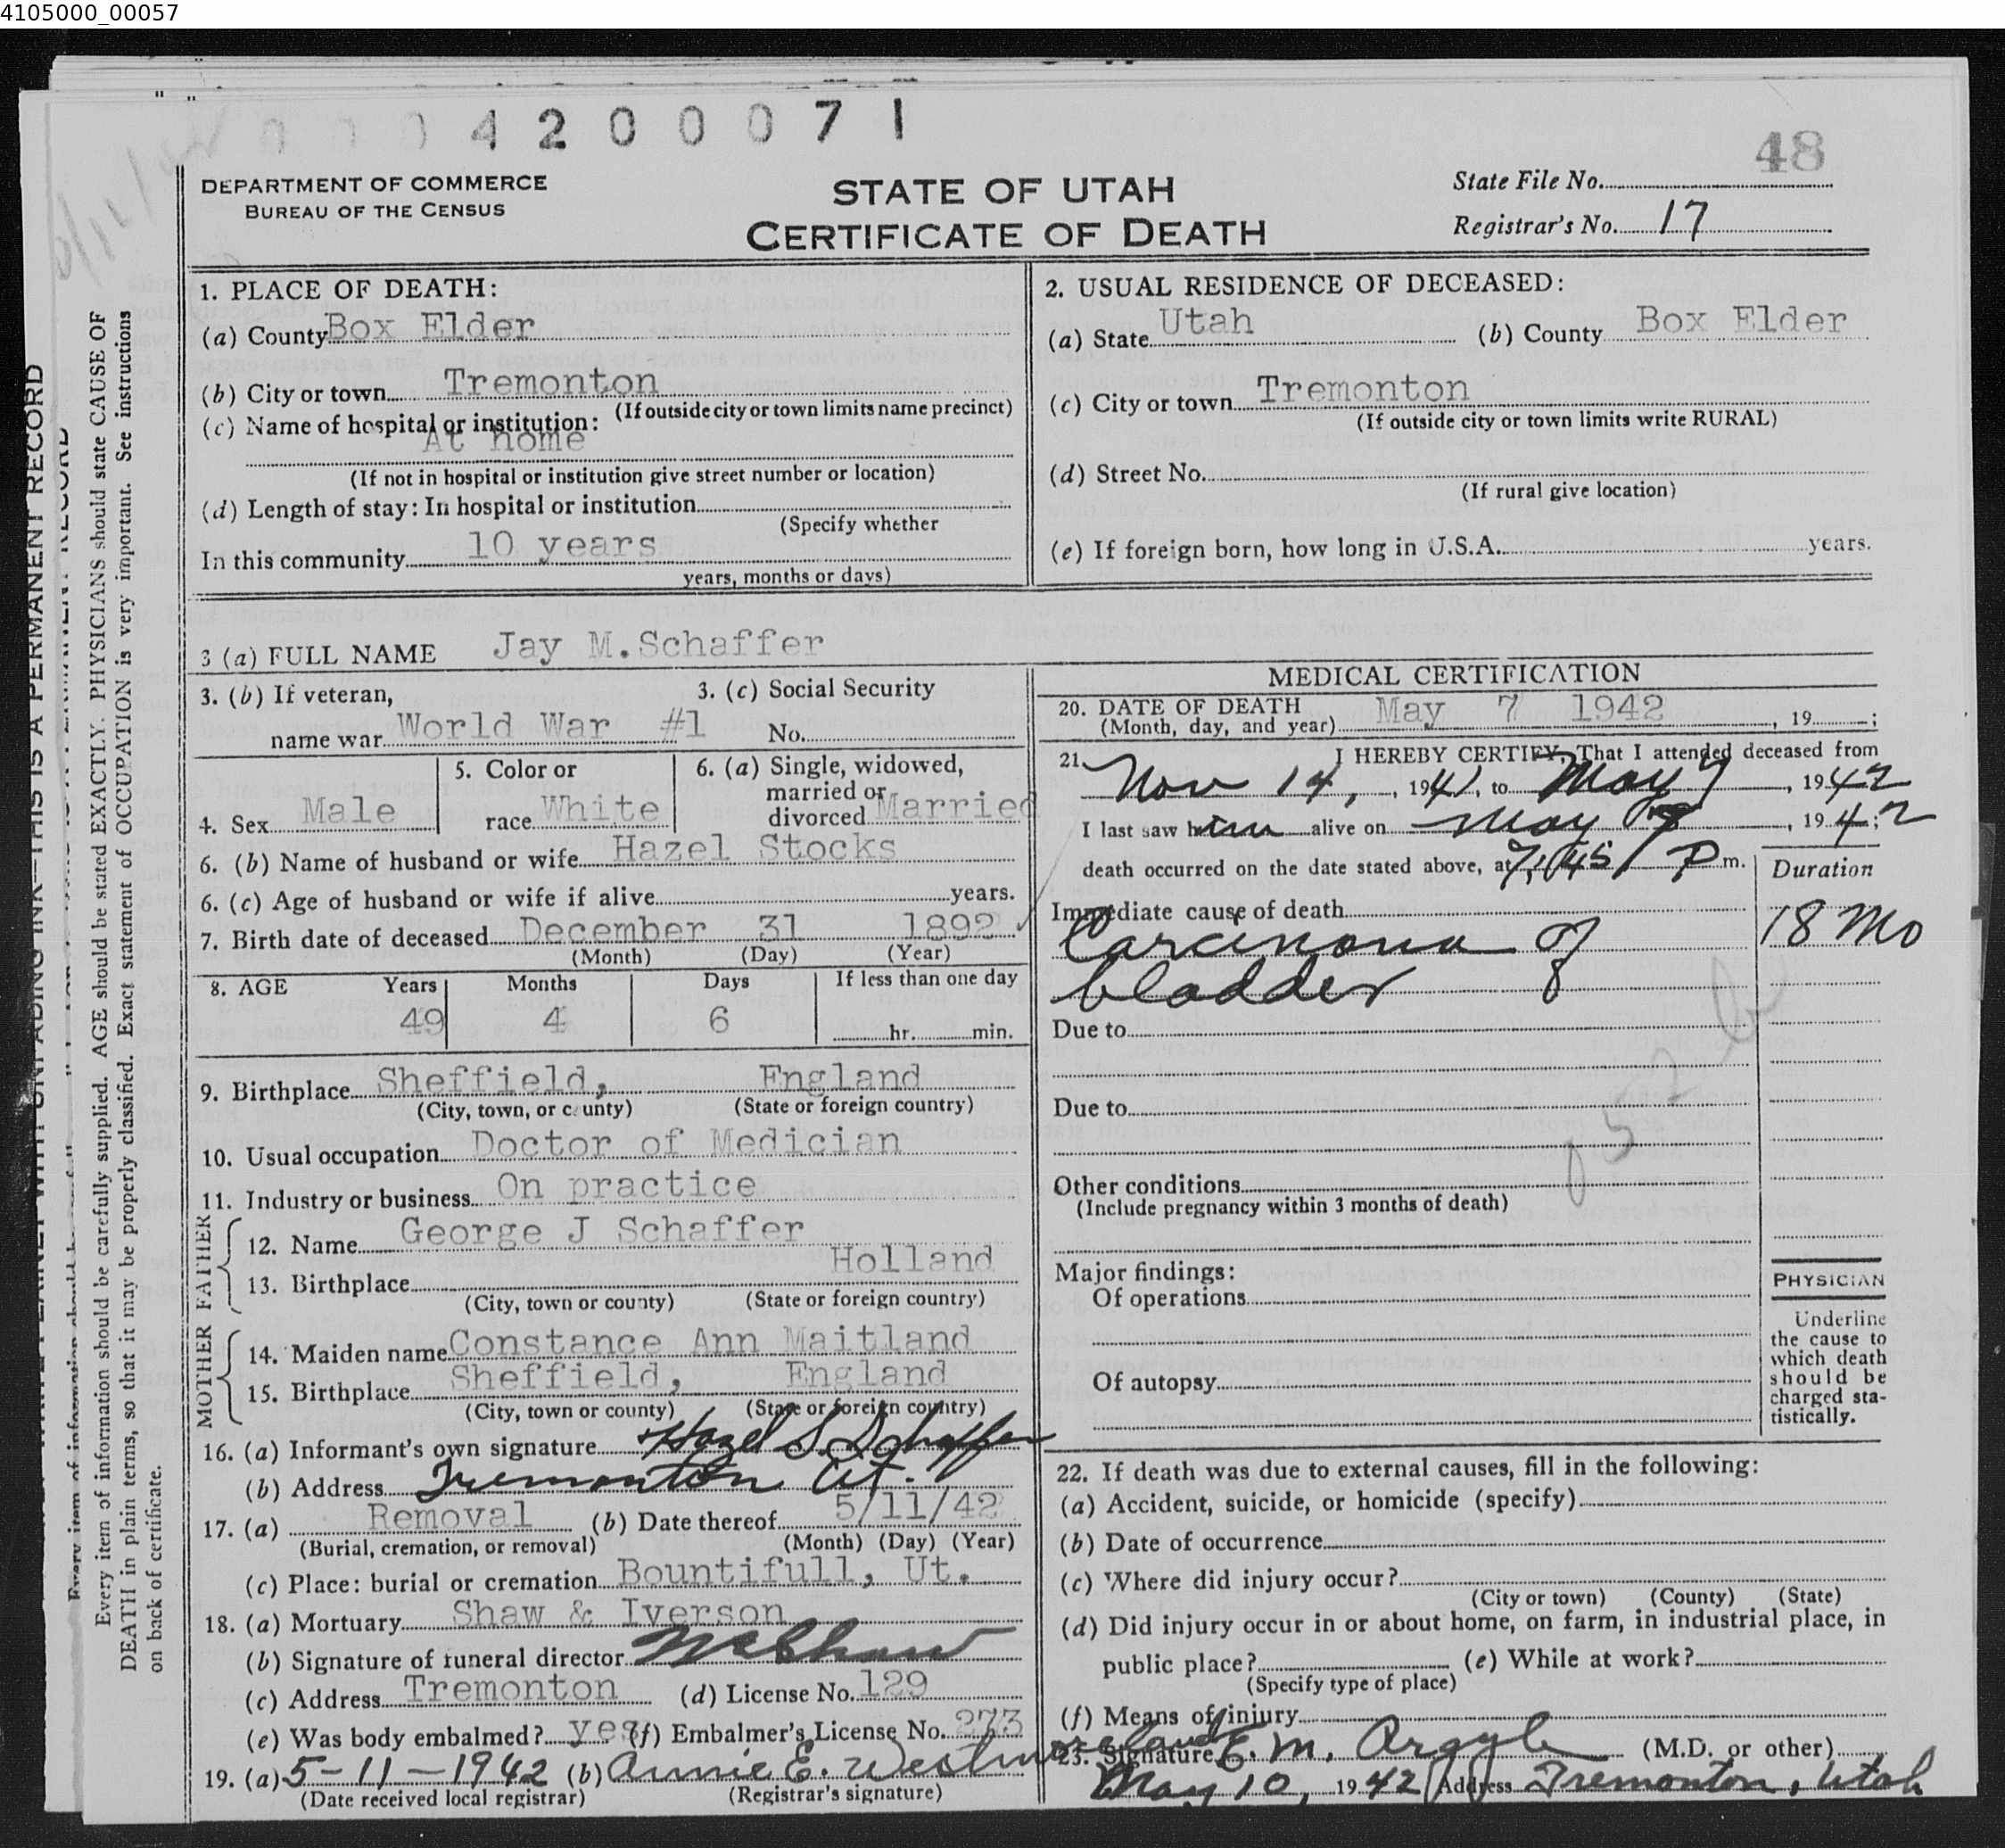 4105000_00057
4 2 0 0 0 7 1
48
DEPARTMENT OF COMMERCE
BUREAU OF THE CENSUS
STATE OF UTAH
CERTIFICATE OF DEATH
State File No.
Registrar's No. 17
1. PLACE OF DEATH:
(a) County Box Elder
(b) City or town Tremonton
(If outside city or town limits name precinct)
(c) Name of hospital or institution:
At home
(If not in hospital or institution give street number or location)
(d) Length of stay: In hospital or institution
(Specify whether
In this community 10 years
years, months or days)
2. USUAL RESIDENCE OF DECEASED:
(a) State Utah (b) County Box Elder
(c) City or town Tremonton
(If outside city or town limits write RURAL)
(d) Street No.
(If rural give location)
(e) If foreign born, how long in U.S.A. years.
3 (a) FULL NAME Jay M.Schaffer
3. (b) If veteran,
name war World War #1
3. (c) Social Security
No.
4. Sex Male
5. Color or
race White
6. (a) Single, widowed,
married or
divorced Married
6. (b) Name of husband or wife Hazel Stocks
6. (c) Age of husband or wife if alive years.
7. Birth date of deceased December 31 1892
(Month) (Day) (Year)
8. AGE Years Months Days If less than one day
49 4 6 hr. min.
9. Birthplace Sheffield, England
(City, town, or county) (State or foreign country)
10. Usual occupation Doctor of Medician
11. Industry or business On practice
FATHER
12. Name George J Schaffer
13. Birthplace Holland
(City, town or county) (State or foreign country)
MOTHER
14. Maiden name Constance Ann Maitland
15. Birthplace Sheffield, England
(City, town or county) (State or foreign country)
16. (a) Informant's own signature Hazel S. Schaffer
(b) Address Tremonton Ut.
17. (a) Removal (b) Date thereof 5/11/42
(Burial, cremation, or removal) (Month) (Day) (Year)
(c) Place: burial or cremation Bountifull, Ut.
18. (a) Mortuary Shaw & Iverson
(b) Signature of funeral director
(c) Address Tremonton (d) License No. 129
(e) Was body embalmed? yes (f) Embalmer's License No. 273
19. (a) 5-11-1942 (b) Annie E. Westmoreland
(Date received local registrar) (Registrar's signature)
MEDICAL CERTIFICATION
20. DATE OF DEATH
(Month, day, and year) May 7 1942, 19 ;
21. I HEREBY CERTIFY, That I attended deceased from
Nov 14, 1941, to May 7, 1942
I last saw him alive on May 7, 1942;
death occurred on the date stated above, at 7:45 P m.
Duration
Immediate cause of death
Carcinoma of
bladder
18 Mo
Due to
Due to
Other conditions
(Include pregnancy within 3 months of death)
Major findings:
Of operations
Of autopsy
PHYSICIAN
Underline
the cause to
which death
should be
charged sta-
tistically.
22. If death was due to external causes, fill in the following:
(a) Accident, suicide, or homicide (specify)
(b) Date of occurrence
(c) Where did injury occur?
(City or town) (County) (State)
(d) Did injury occur in or about home, on farm, in industrial place, in
public place? (e) While at work?
(Specify type of place)
(f) Means of injury
23. Signature E. M. Argyle (M.D. or other)
May 10, 1942 Address Tremonton, Utah
Every item of information should be carefully supplied. AGE should be stated EXACTLY. PHYSICIANS should state CAUSE OF
DEATH in plain terms, so that it may be properly classified. Exact statement of OCCUPATION is very important. See instructions
on back of certificate.
THIS IS A PERMANENT RECORD